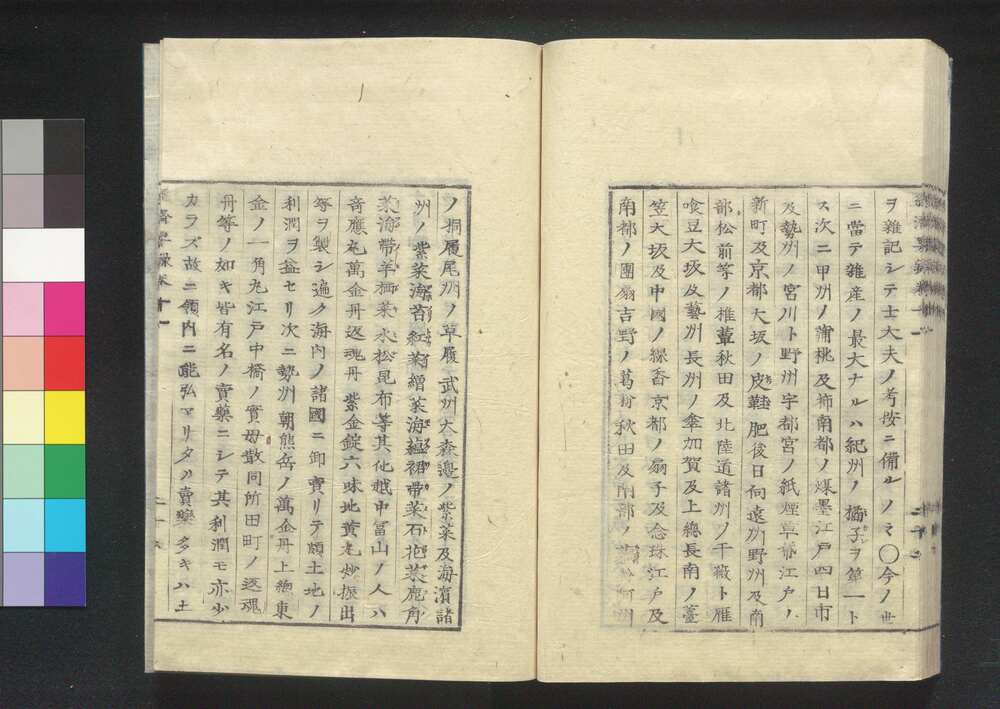 ヲ雜記シテ士大夫ノ考按ニ備ルノマ〇今ノ世
ニ當テ雜産ノ最大ナルハ紀州ノ橘子ヲ第一ト
ス次ニ甲州ノ蒲桃及柿南都ノ煤墨江戸四日市
及勢州ノ宮川ト野州宇都宮ノ紙煙草齊江戸ノ
新町及京都大坂ノ皮鞋肥後日向遠州野州及南
部松前等ノ椎蕈秋田及北陸道諸州ノ干薇ト雁
喰豆大坂及藝州長州ノ傘加賀及上總長南ノ薹
笠大坂及中國ノ線香京都ノ扇子及念珠江戸及
南都ノ團扇吉野ノ葛粉秋田及南部ノ 河州
ノ桐履尾州ノ草履武州大森邊ノ紫菜及海濱諸
州ノ紫菜海苔紅菜繒菜海蘊裙帶菜石花菜鹿角
菜海帶羊栖菜水松昆布等其他越中冨山ノ人ハ
竒應丸萬金丹返魂丹紫金錠六味地黄丸炒振出
等ヲ製シ遍ク海内ノ諸國ニ卸賣リテ頗土地ノ
利潤ヲ益セリ次ニ勢州朝熊岳ノ萬金丹上總東
金ノ一角丸江戸中橋ノ實母散同所田町ノ返魂
丹等ノ如キ皆有名ノ賣藥ニシテ其利潤モ亦少
カラズ故ニ領内ニ能弘マリタル賣藥多キハ土